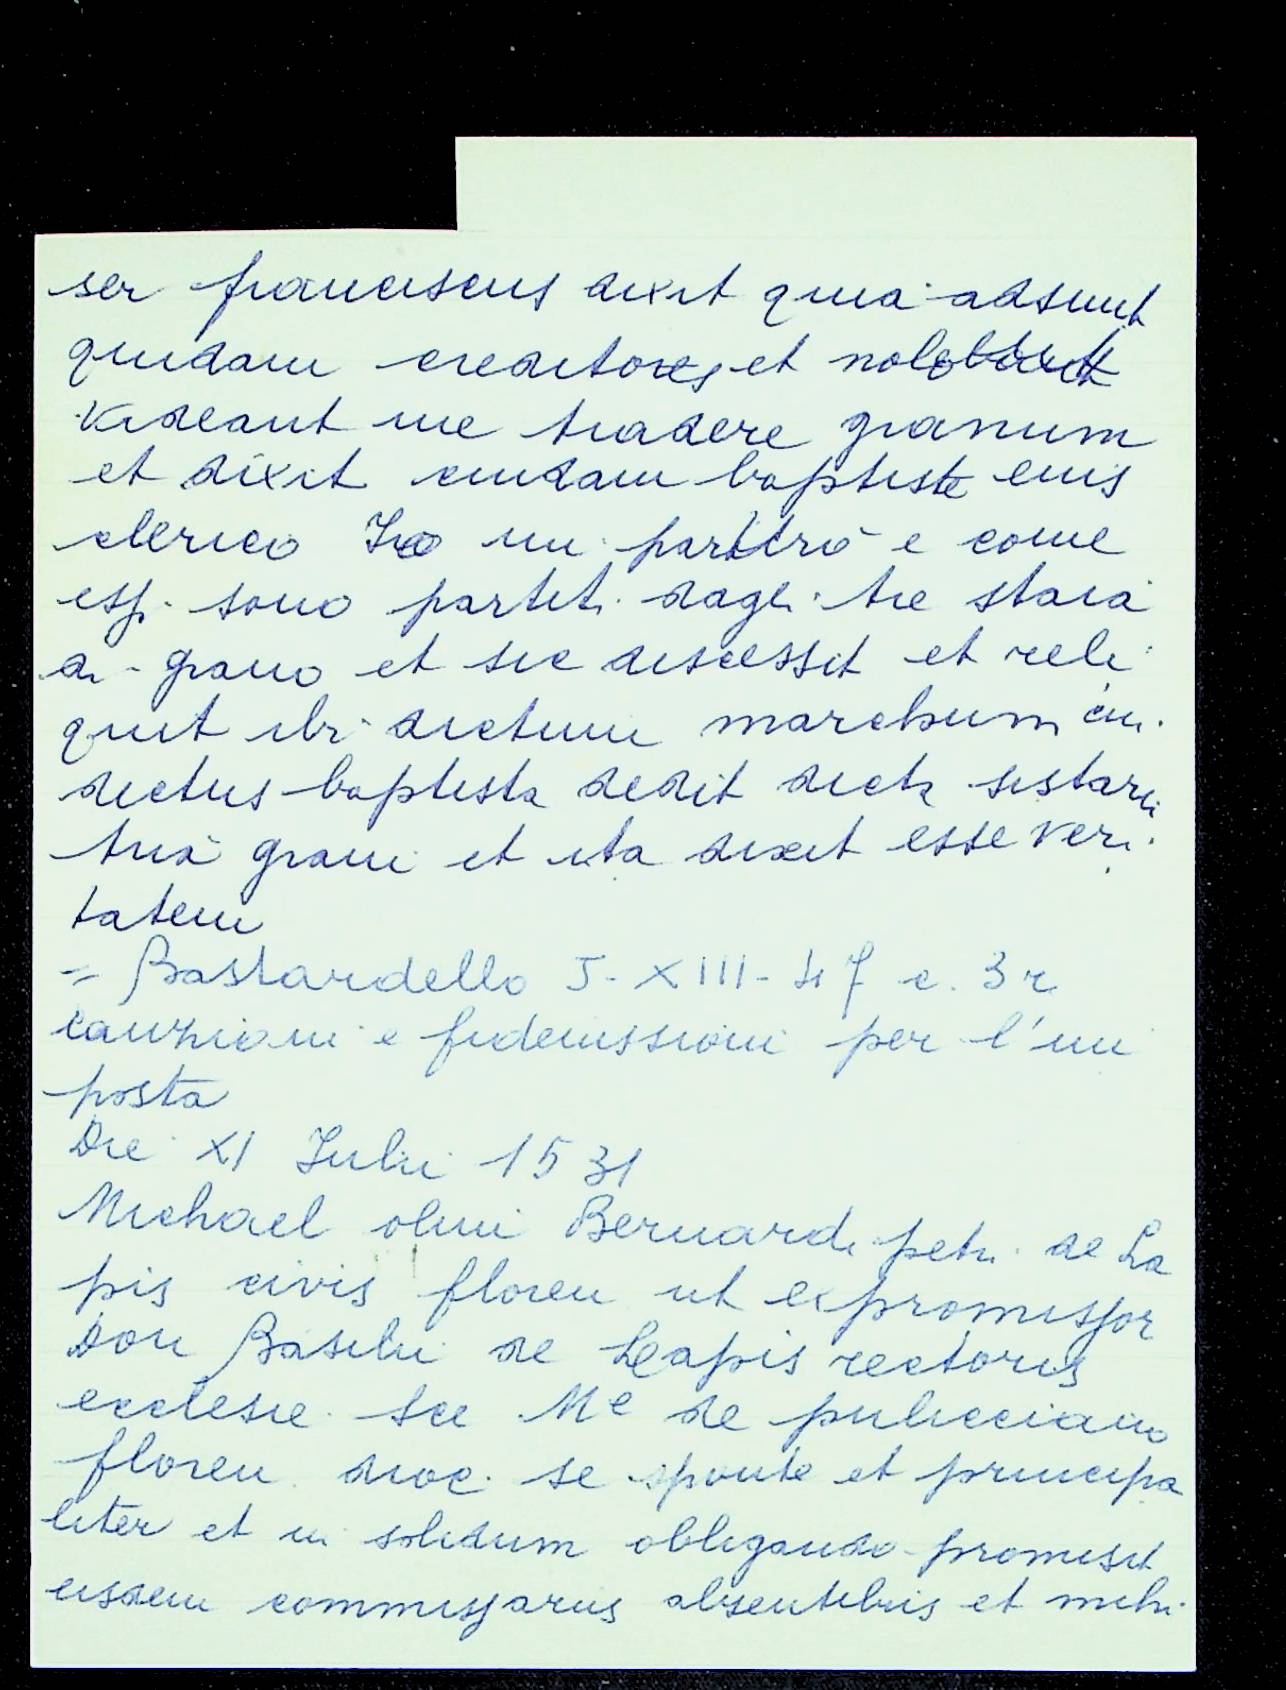 ser franciscus dixit quia adsunt
quidam creditores et nolo
videant me tradere granum
et dixit cuidam baptiste eius
clerico Io mi partirò e come
essi sono partiti dagli tre staia
di grano et sic discessit et reli
quit ibi dictum marchum cui
dictus baptista dedit dicta sistaria
tria grani et ita dixit esse veri
tatem
= Bastardello J-XIII-47 c. 3r
cauzioni e fidemissioni per l'im
posta
Die XI Iulii 1531
Michael olim Bernardi petri de La
pis civis floren ut expromissor
Don Basilii de Lapis rectoris
ecclesie sce Me de pulicciano
floren dioc. se sponte et principa
liter et in solidum obligando promisit
eisdem commissariis absentibus et mihi